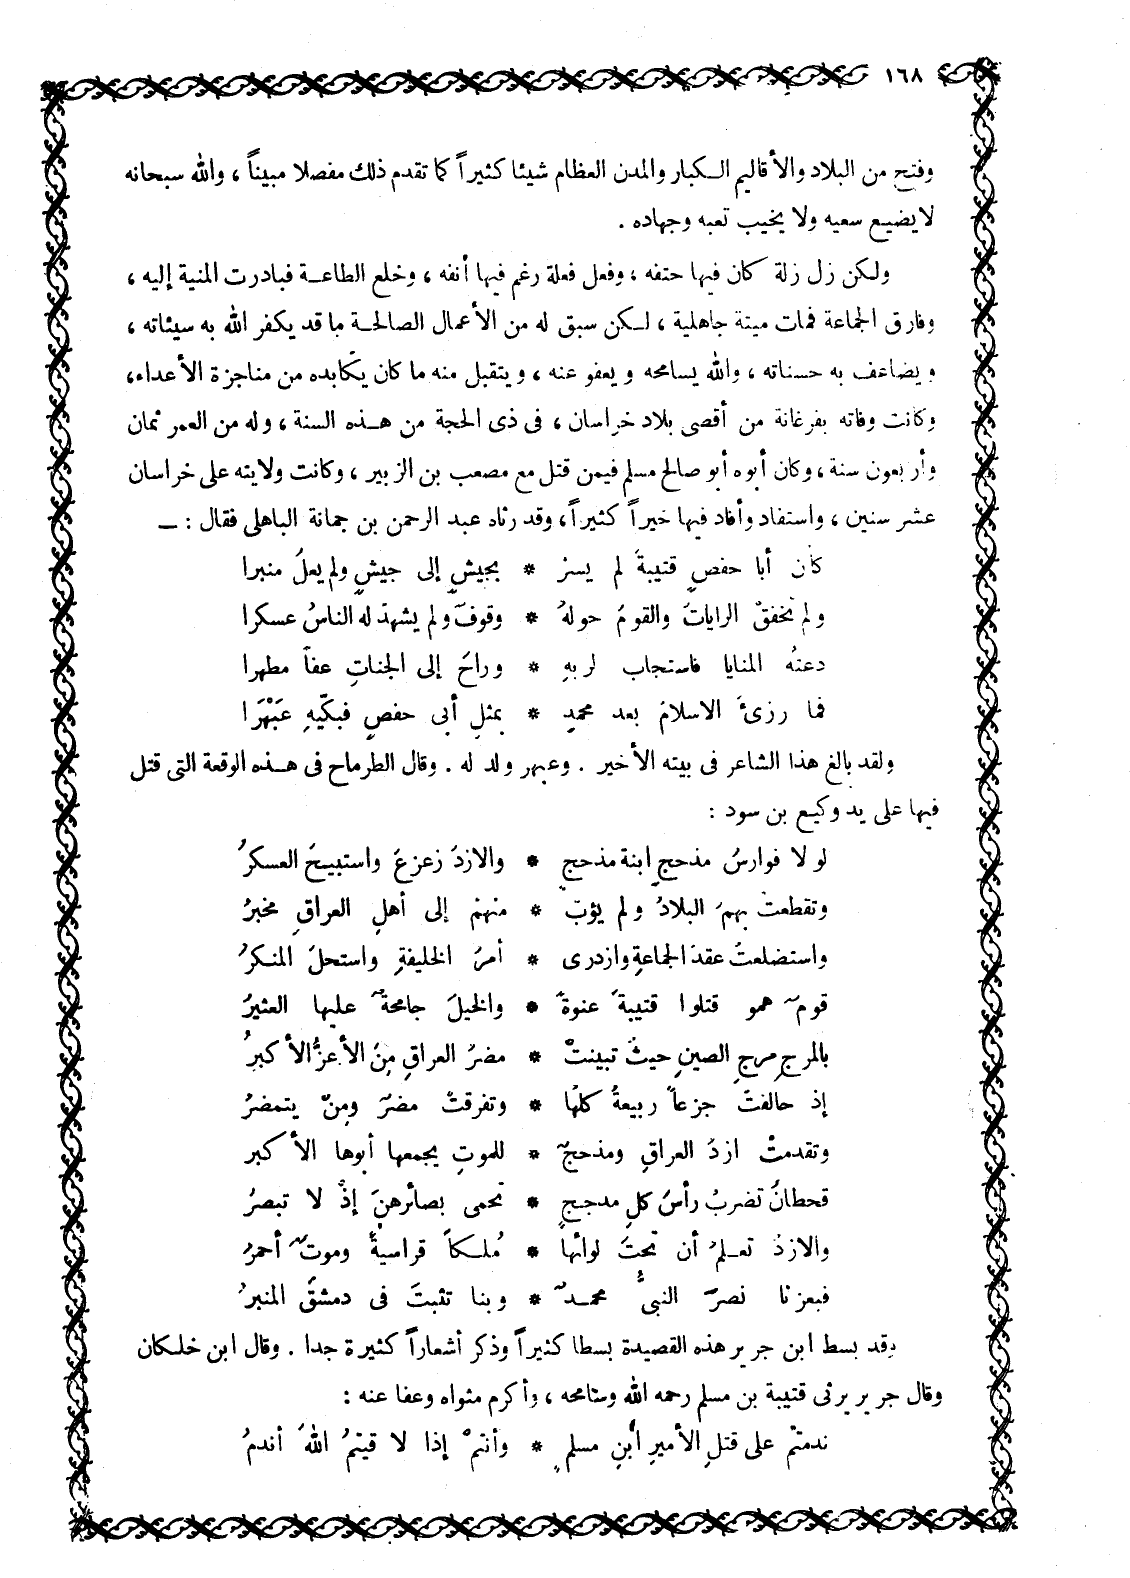 ١٦٨
وفتح من البلاد والأقاليم الكبار والمدن العظام شيئا كثيراً كما تقدم ذلك مفصلا مبيناً ، والله سبحانه
لا يضيع سعيه ولا يخيب تعبه وجهاده .
ولكن زل زلة كان فيها حتفه ، وفعل فعلة رغم فيها أنفه ، وخلع الطاعة فبادرت المنية إليه ،
وفارق الجماعة فمات ميتة جاهلية ، لكن سبق له من الأعمال الصالحة ما قد يكفر الله به سيئاته ،
ويضاعف به حسناته ، والله يسامحه ويعفو عنه ، ويتقبل منه ما كان يكابده من مناجزة الأعداء ،
وكانت وفاته بفرغانة من أقصى بلاد خراسان ، فى ذى الحجة من هذه السنة ، وله من العمر ثمان
وأربعون سنة ، وكان أبوه أبو صالح مسلم فيمن قتل مع مصعب بن الزبير ، وكانت ولايته على خراسان
عشر سنين ، واستفاد وأفاد فيها خيراً كثيراً ، وقد رثاه عبد الرحمن بن جمانة الباهلى فقال : ــ
كأن أبا حفصٍ قتيبةَ لم يسرْ * بجيشٍ إلى جيشٍ ولم يعلُ منبرا
ولم تخفقْ الراياتُ والقومُ حولهُ * وقوفٌ ولم يشهدْ له الناسُ عسكرا
دعتهُ المنايا فاستجاب لربهِ * وراحَ إلى الجناتِ عفاً مطهرا
فما رزئَ الاسلامُ بعد محمدٍ * بمثلِ أبى حفصٍ فبكّيهِ عَبْهَرَا
ولقد بالغ هذا الشاعر فى بيته الأخير . وعبهر ولد له . وقال الطرماح فى هذه الوقعة التى قتل
فيها على يد وكيع بن سود :
لولا فوارسُ مذحجٍ ابنة مذحج * والازدُ زعزعَ واستبيحَ العسكرُ
وتقطعتْ بهمُ البلادُ ولم يؤبْ * منهمْ إلى أهلِ العراقِ مخبرُ
واستضلعتْ عقدُ الجماعةِ وازدرى * أمرُ الخليفةِ واستحلَ المنكرُ
قومٌ همو قتلوا قتيبةَ عنوةً * والخيلُ جامحةٌ عليها العثيرُ
بالمرجِ مرجِ الصينِ حيثُ تبينتْ * مضرُ العراقِ مِنْ الأعزُّ الأكبرُ
إذ حالفتْ جزعاً ربيعةُ كلها * وتفرقتْ مضرٌ ومنْ يتمضرُ
وتقدمتْ ازدُ العراقِ ومذحجٌ * للموتِ يجمعها أبوها الأكبر
قحطانُ تضربُ رأسَ كلِ مدججٍ * تحمى بصائرهنَ إذْ لا تبصرُ
والازدُ تعلمُ أن تحتَ لوائها * مُلكاً قراسيةٌ وموتٌ أحمرُ
فبعزنا نصرَ النبىُّ محمدٌ * وبنا تثبتَ فى دمشقَ المنبرُ
وقد بسط ابن جرير هذه القصيدة بسطا كثيراً وذكر أشعاراً كثيرة جدا . وقال ابن خلكان
وقال جرير يرثى قتيبة بن مسلم رحمه الله وسامحه ، وأكرم مثواه وعفا عنه :
ندمتمْ على قتلِ الأميرِ ابْنِ مسلمٍ * وأنتمْ إذا لاقيتمُ اللهَ أندمُ